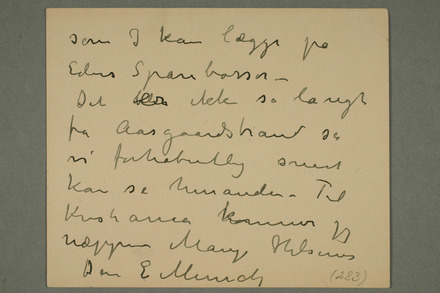 som I kan lægge på
Eders Sparebørser –
Det er ikke så langt
fra Aasgaardstrand så
vi forhåbentlig snart
kan se hinanden – Til
Kristiania kommer jeg
næppe Mange Hilsner
Den E Munch
(283)